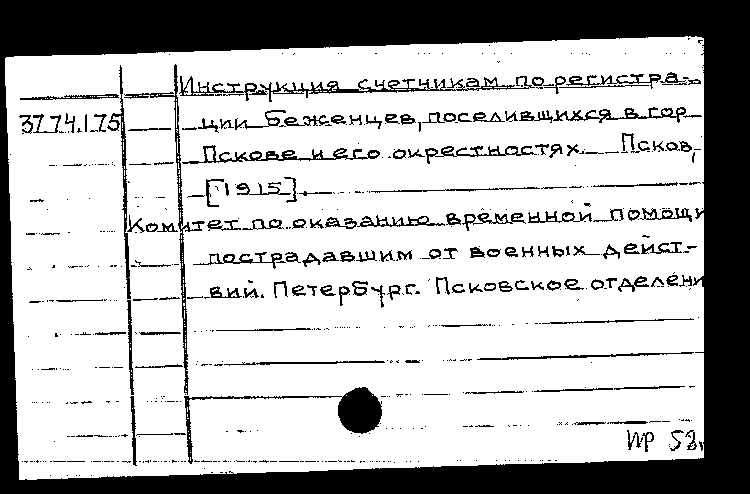 Инструкция счетчикам по регистра-
3774.175 ции беженцев, поселившихся в гор
Пскове и его окрестностях. Псков,
[1915].
Комитет по оказанию временной помощи
пострадавшим от военных дейст-
вий. Петербург. Псковское отделени